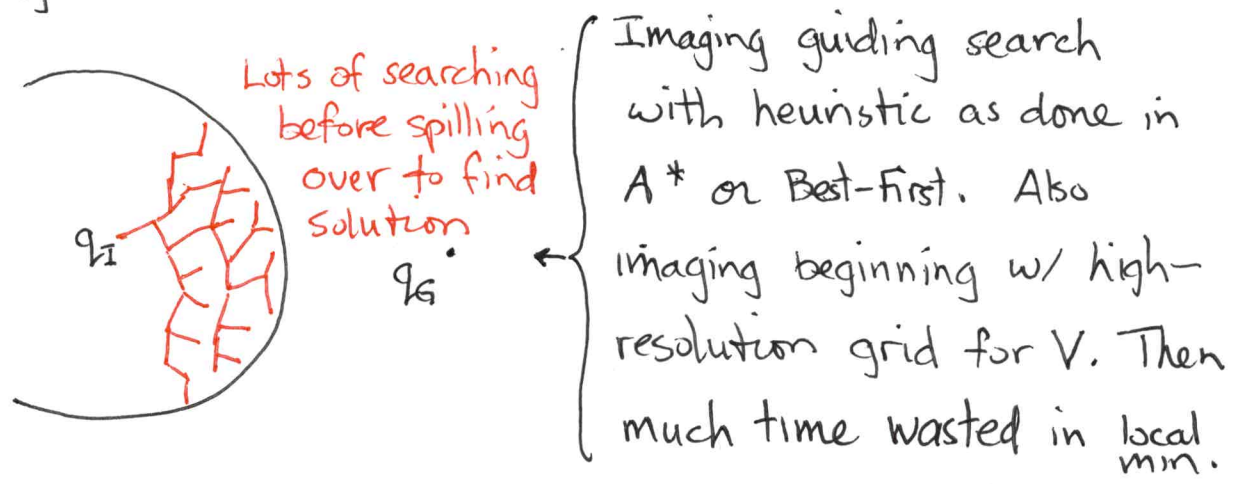 Lots of searching
before spilling
over to find
solution
q_I
q_G
Imaging guiding search
with heuristic as done in
A* or Best-First. Also
imaging beginning w/ high-
resolution grid for V. Then
much time wasted in local
min.